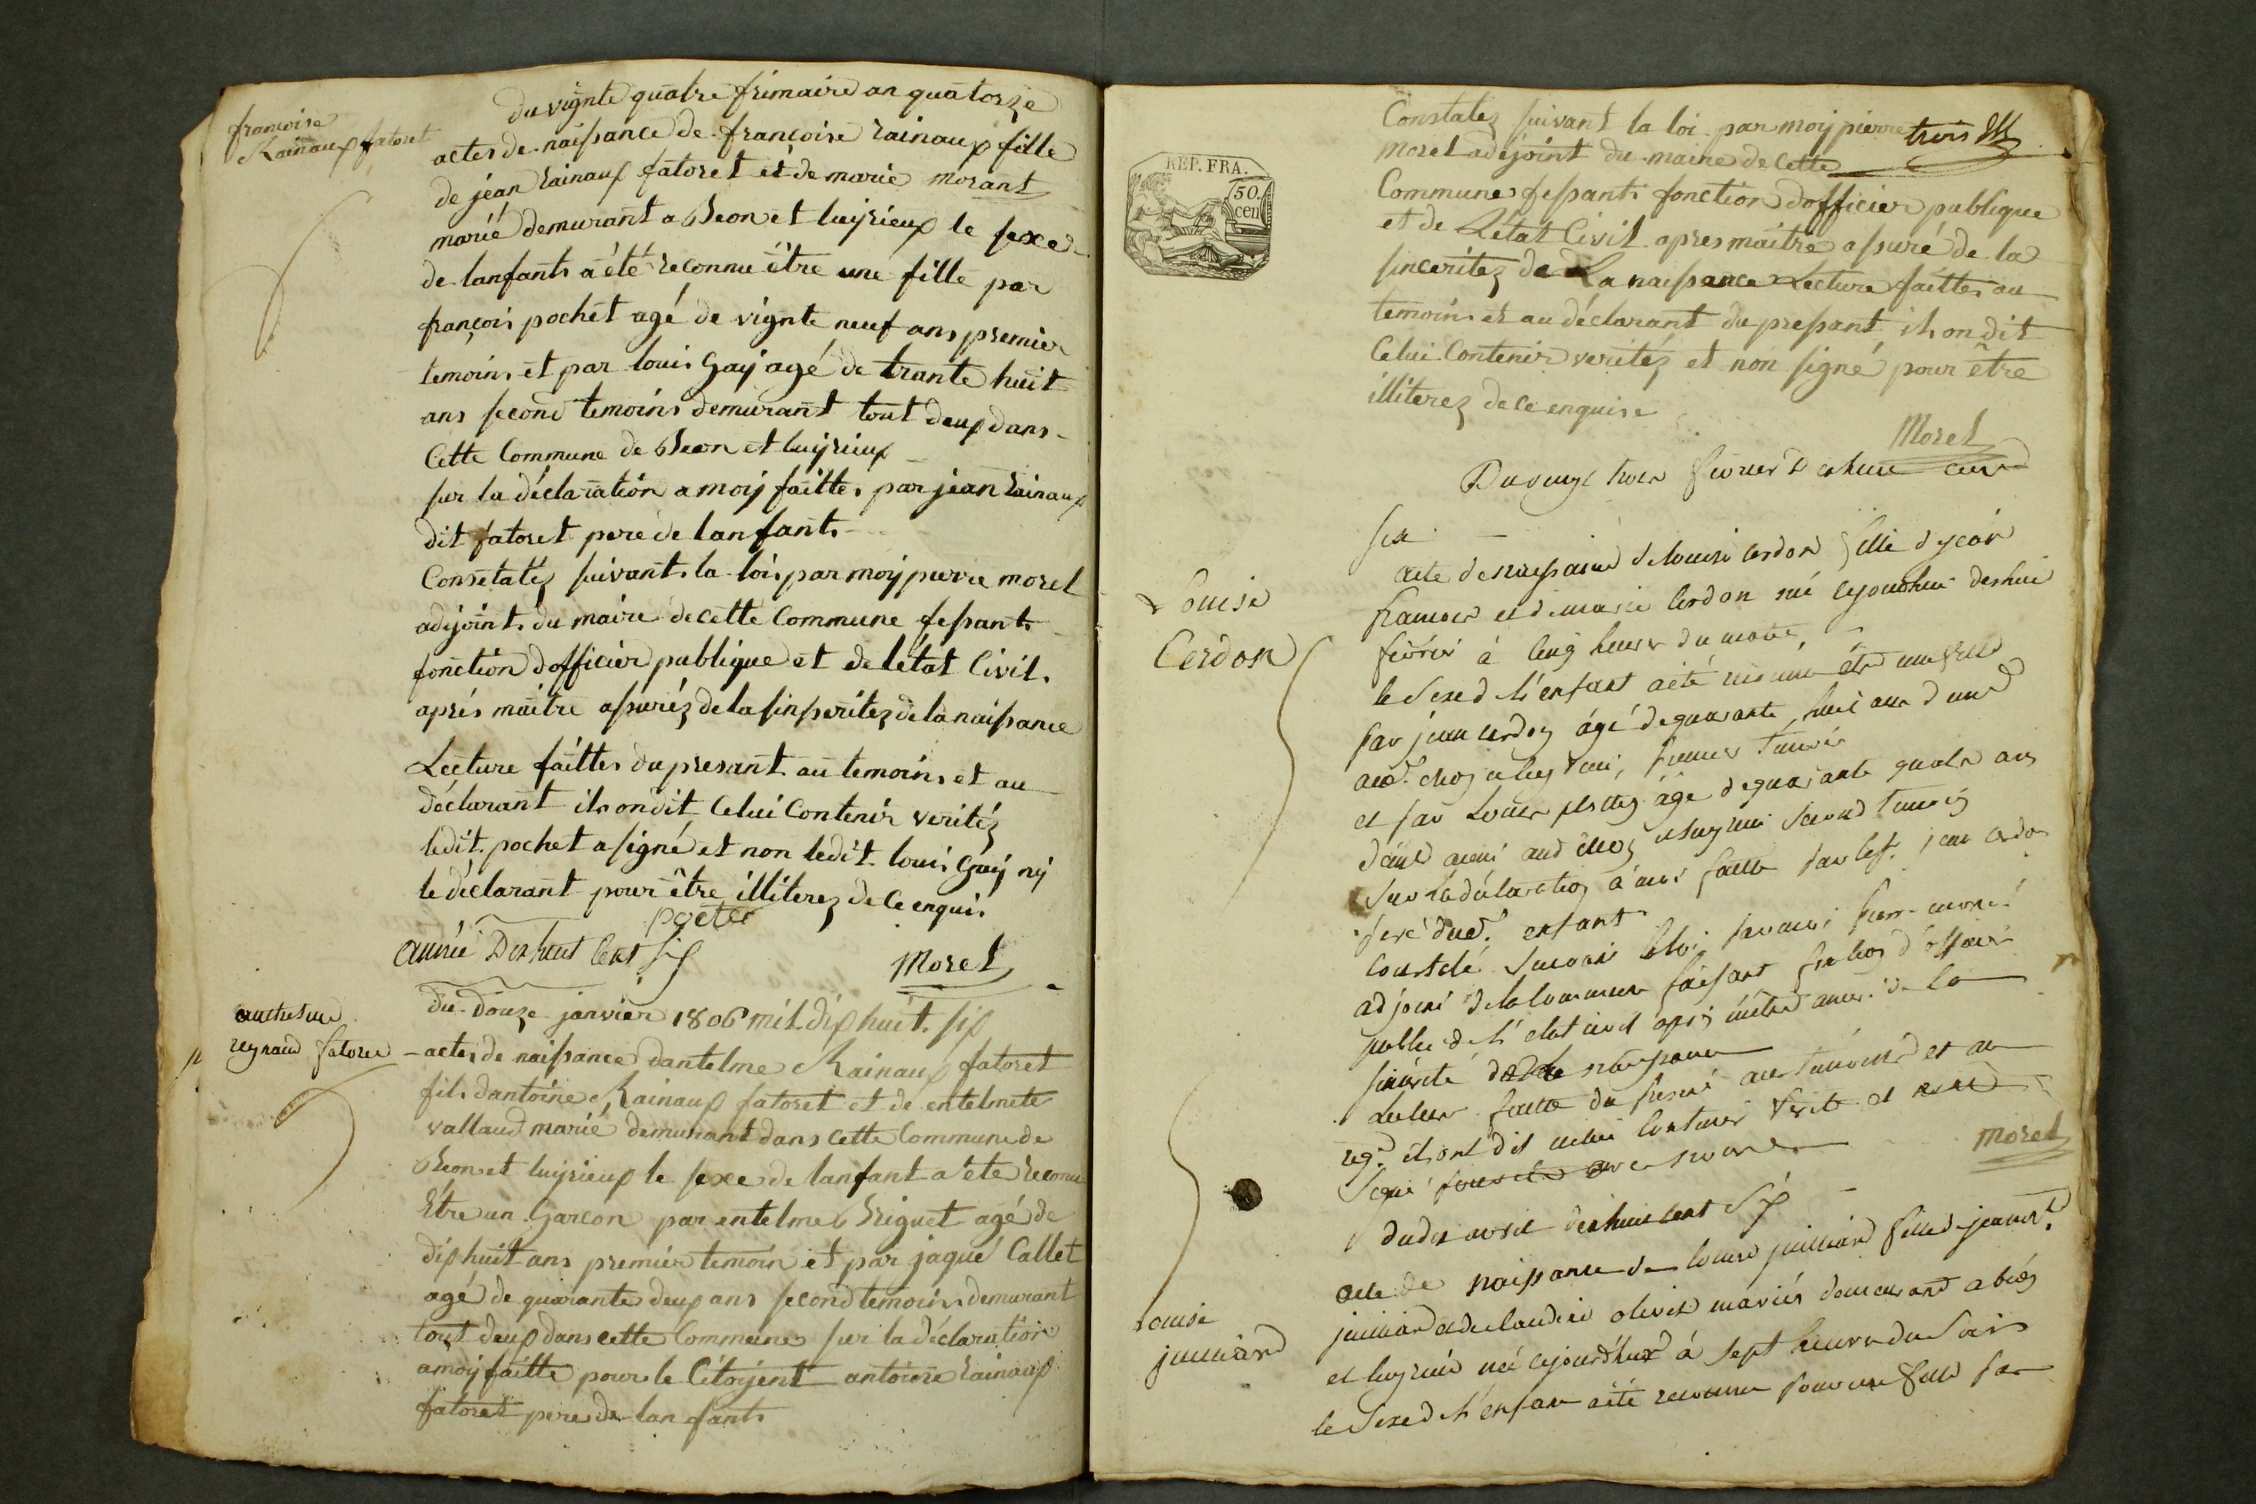 francoise
Rainaux fatoret
du vignte quatre frimaire an quatorze
actes de naissance de francoise rainaux fille
de jéan rainaux fatoret et de marie morant
marié demurant a Beon et luyrieux le sexe
de lanfants a été reconnu être une fille par
françois pochet agé de vignte neuf ans premier
temoins et par louis Gay agé de trante huit
ans second temoins demurant tout deux dans
Cette Commune de Beon et luyrieux
sur la déclaration a moy faittes par jéan rainaux
dit fatoret pere de lanfants
Constatéz suivants la loi par moy pierre morel
adjoints du maire de cette Commune fessants
fonction dofficier publique et de létat Civil.
aprés maitre assuréz de la sinseritez de la naissance
Lecture faittes du presant au temoins et au
déclarant ils on dit Celui Contenir veritéz
ledit pochet a signé et non ledit louis Gay ny
le déclarant pour être illiterez de ce enquis
poctee
année Dix huit Cent six
Morel
du douze janvier 1806 mil dix huit six
reynaud fatoret
actes de naissance dantelme Rainaux fatoret
fils dantoine Rainaux fatoret et de entelmete
vallaud marié demurant dans cette Commune de
Beon et luyrieux le sexe de lanfant a été reconu
Être un Garcon par entelme Briguet agé de
dix huit ans premier temoin et par jaque Callet
agé de quarantes deux ans second temoins demurant
tout deux dans cette Commune sur la déclaration
a moy faitte pour le Citoyent antoine rainaux
fatoret pere de lanfants
REP. FRA.
50.
cen
trois
Constatez suivant la loi par moy pierre
morel adejoint du maire de Cette
Commune fessants fonction dofficier publique
et de Létat Civil apres maitre assuré de la
sinceritez de La naissance Lecture faittes au
temoins et au déclarant du pressant ils on dit
Celui Contenir veritéz et non signé pour être
illiterez de ce enquise
Morel
Du vingt trois fevrier Dixhuit cent
six
Louise
Cerdon
acte de naissance de louise cerdon fille de jean
francois et de marie Cerdon né cejourdhui dixhuit
fevrier à cinq heures du matin
le Sexe de l'enfant a été reconnu être une fille
par jean cerdon âgé de quarante huit ans
premier temoin
et par Louis âgé de quarante quatre ans
second temoin
Sur la déclaration à moi faitte par jean cerdon
pere dud. enfant
Constaté Suivant la loi par moi pierre morel
adjoint de la Commune faisant fonction d'officier
public de l'etat civil après m'être assuré de la
sincerité de la naissance
Lecture faitte du présent aux temoins et au
ils ont dit celui Contenir Verité et
Morel
du dix avril dixhuit cent Six
Louise
juilliard
acte de naissance de louise juilliard fille de
juilliard et de claudine olivet mariés demeurant a béon
et luyrieu née cejourdhui à Sept heures du Soir
le Sexe de l'enfant a été reconnu pour une fille par